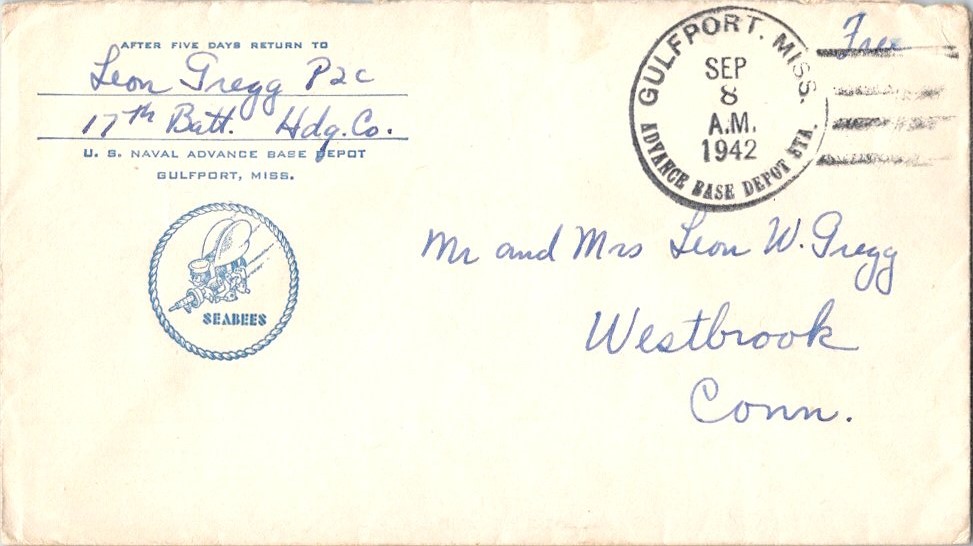 AFTER FIVE DAYS RETURN TO
Leon Gregg P2c
17th Batt. Hdq. Co.
U. S. NAVAL ADVANCE BASE DEPOT
GULFPORT, MISS.
SEABEES
GULFPORT. MISS.
SEP
8
A.M.
1942
ADVANCE BASE DEPOT STA.
Free
Mr and Mrs Leon W. Gregg
Westbrook
Conn.